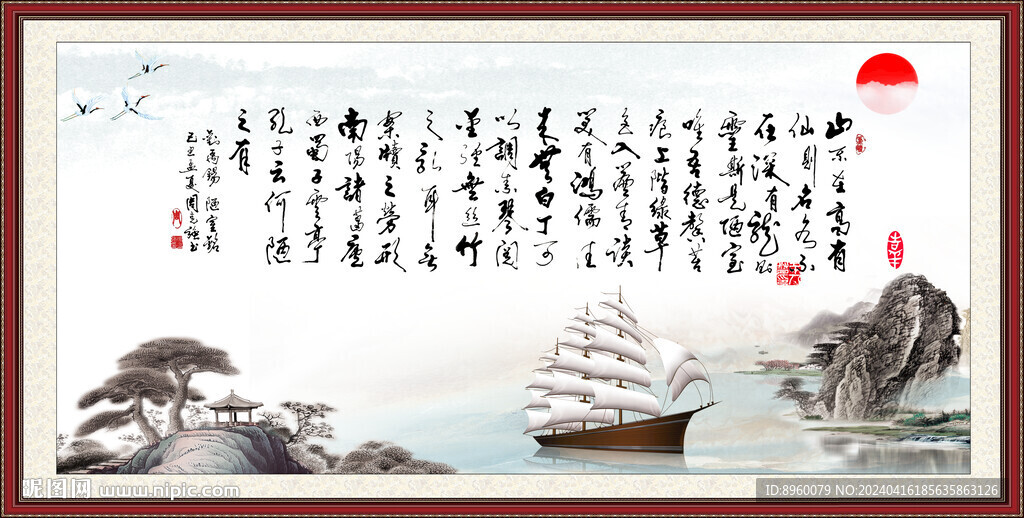 山不在高有
仙則名水不
在深有龍則
靈斯是陋室
唯吾德馨苔
痕上階綠草
色入簾青談
笑有鴻儒往
来無白丁可
以調素琴閱
金經無絲竹
之亂耳無
案牘之勞形
南陽諸葛廬
西蜀子雲亭
孔子云何陋
之有
劉禹錫 陋室銘
己丑孟夏周
昵图网 www.nipic.com
ID:8960079 NO:20240416185635863126